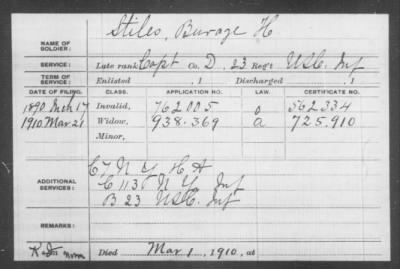 NAME OF SOLDIER: Stiles, Burage H
SERVICE: Late rank Capt Co. D, 23 Reg't U.S.C. Inf
TERM OF SERVICE: Enlisted , 1 Discharged , 1
DATE OF FILING. CLASS. APPLICATION NO. LAW. CERTIFICATE NO.
1890 17 Invalid, 762005 562334
1910 Mar 21 Widow, 938.369 a 725.910
Minor,
ADDITIONAL SERVICES:
C 7 N Y H A
C 113 N. Y. Inf
B 23 U.S.C. Inf
REMARKS:
Died Mar 1, 1910, at